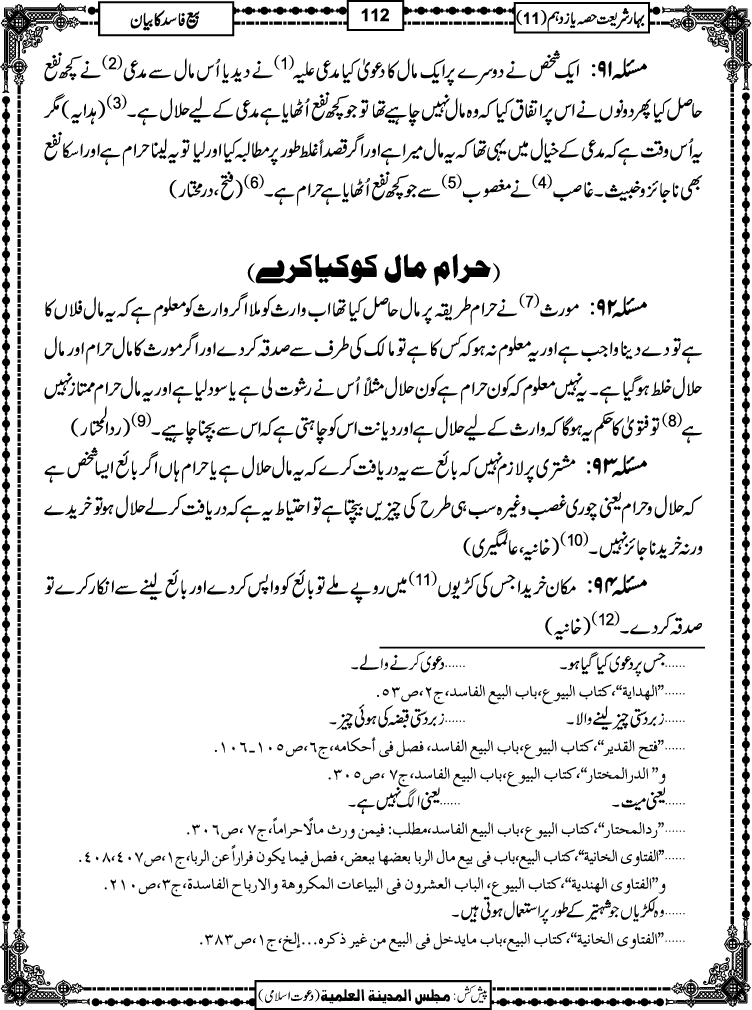 بہارِ شریعت حصہ یازدہم (11)
112
بیع فاسد کا بیان
مسئلہ ۹۱: ایک شخص نے دوسرے پر ایک مال کا دعویٰ کیا مدعی علیہ(1) نے دیدیا اُس مال سے مدعی(2) نے کچھ نفع
حاصل کیا پھر دونوں نے اس پر اتفاق کیا کہ وہ مال نہیں چاہیے تھا تو جو کچھ نفع اُٹھایا ہے مدعی کے لیے حلال ہے۔(3) (ہدایہ) مگر
یہ اُس وقت ہے کہ مدعی کے خیال میں یہی تھا کہ یہ مال میرا ہے اور اگر قصداً غلط طور پر مطالبہ کیا اور لیا تو یہ لینا حرام ہے اور اسکا نفع
بھی ناجائز و خبیث۔ غاصب(4) نے مغصوب(5) سے جو کچھ نفع اُٹھایا ہے حرام ہے۔(6) (فتح، درمختار)
(حرام مال کو کیا کرے)
مسئلہ ۹۲: مورث(7) نے حرام طریقہ پر مال حاصل کیا تھا اب وارث کو ملا اگر وارث کو معلوم ہے کہ یہ مال فلاں کا
ہے تو دے دینا واجب ہے اور یہ معلوم نہ ہو کہ کس کا ہے تو مالک کی طرف سے صدقہ کر دے اور اگر مورث کا مال حرام اور مال
حلال خلط ہو گیا ہے۔ یہ نہیں معلوم کہ کون حرام ہے کون حلال مثلاً اُس نے رشوت لی ہے یا سود لیا ہے اور یہ مال حرام ممتاز نہیں
ہے(8) تو فتویٰ کا حکم یہ ہوگا کہ وارث کے لیے حلال ہے اور دیانت اس کو چاہتی ہے کہ اس سے بچنا چاہیے۔(9) (ردالمحتار)
مسئلہ ۹۳: مشتری پر لازم نہیں کہ بائع سے یہ دریافت کرے کہ یہ مال حلال ہے یا حرام ہاں اگر بائع ایسا شخص ہے
کہ حلال و حرام یعنی چوری غصب وغیرہ سب ہی طرح کی چیزیں بیچتا ہے تو احتیاط یہ ہے کہ دریافت کرلے حلال ہو تو خریدے
ورنہ خریدنا جائز نہیں۔(10) (خانیہ، عالمگیری)
مسئلہ ۹۴: مکان خریدا جس کی کڑیوں(11) میں روپے ملے تو بائع کو واپس کردے اور بائع لینے سے انکار کرے تو
صدقہ کردے۔(12) (خانیہ)
......جس پر دعوی کیا گیا ہو۔ ......دعوی کرنے والے۔
......”الهداية“، كتاب البيوع، باب البيع الفاسد، ج۲، ص۵۳.
......زبردستی چیز لینے والا۔ ......زبردستی قبضہ کی ہوئی چیز۔
......”فتح القدير“، كتاب البيوع، باب البيع الفاسد، فصل فى أحكامه، ج۶، ص۱۰۵۔۱۰۶.
و”الدرالمختار“، كتاب البيوع، باب البيع الفاسد، ج۷، ص۳۰۵.
......یعنی میت۔ ......یعنی الگ نہیں ہے۔
......”ردالمحتار“، كتاب البيوع، باب البيع الفاسد، مطلب: فيمن ورث مالًا حراماً، ج۷، ص۳۰۶.
......”الفتاوى الخانية“، كتاب البيع، باب فى بيع مال الربا بعضها ببعض، فصل فيما يكون فراراً عن الربا، ج۱، ص۴۰۸،۴۰۷.
و”الفتاوى الهندية“، كتاب البيوع، الباب العشرون فى البياعات المكروهة والارباح الفاسدة، ج۳، ص۲۱۰.
......وہ لکڑیاں جو شہتیر کے طور پر استعمال ہوتی ہیں۔
......”الفتاوى الخانية“، كتاب البيع، باب مايدخل فى البيع من غير ذكره...إلخ، ج۱، ص۳۸۳.
پیش کش: مجلس المدينة العلمية (دعوت اسلامی)